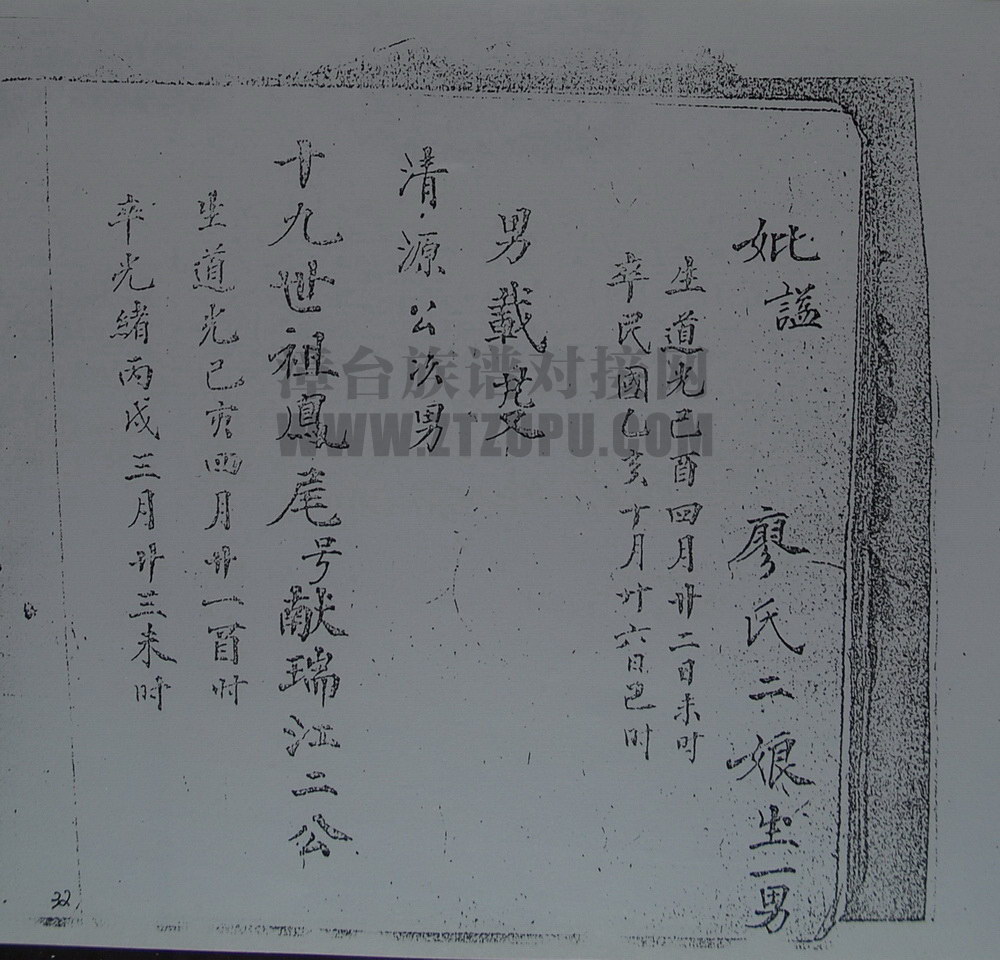 妣諡 廖氏二娘生一男
生道光己酉四月廿二日未时
卒民國乙亥十月廿六日巳时
男載
清源公次男
十九世祖鳳尾号献瑞江二公
生道光己亥四月廿一酉时
卒光緒丙戌三月廿三未时
32
漳台族谱对接网
WWW.ZTZUPU.COM